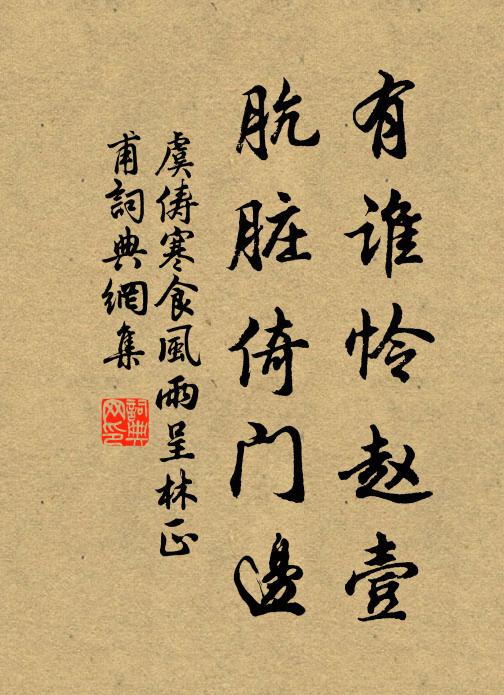 有谁怜赵壹
肮脏倚门邊
虞俦寒食風雨呈林正
甫詞典網集
詞典
网印